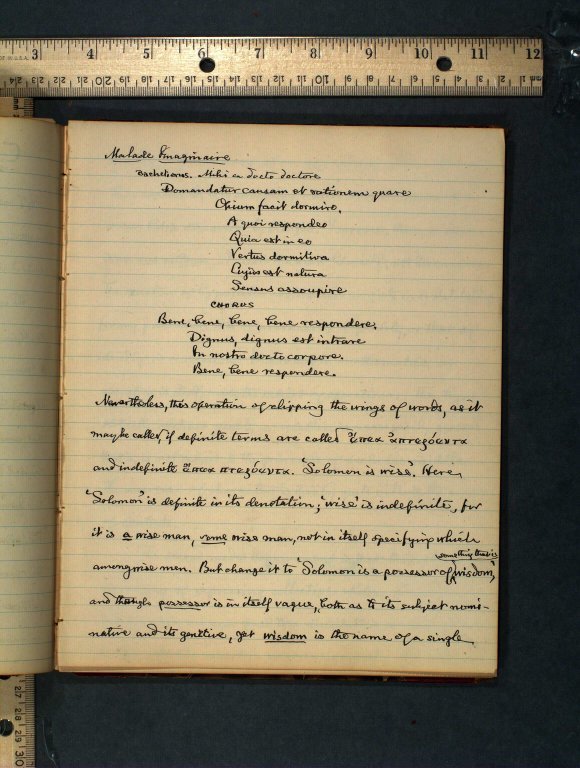 Malade Imaginaire
Bachelierus. Mihi a docto doctore
Domandatur causam et rationem quare
Opium facit dormire.
A quoi respondeo
Quia est in eo
Vertus dormitiva
Cujus est natura
Sensus assoupire
CHORUS
Bene, bene, bene, bene respondere.
Dignus, dignus est intrare
In nostro docto corpore.
Bene, bene respondere.
Nevertheless, this operation of clipping the wings of words, as it
may be called, if definite terms are called ἔπεα ἀπτερόεντα
and indefinite ἔπεα πτερόεντα. 'Solomon is wise'. Here,
'Solomon' is definite in its denotation; 'wise' is indefinite, for
it is a wise man, some wise man, not in itself specifying which
among wise men. But change it to 'Solomon is a possessor of
something that is
wisdom',
and though possessor is in itself vague, both as to its subject nomi-
native and its genitive, yet wisdom is the name of a single
3 4 5 6 7 8 9 10 11 12